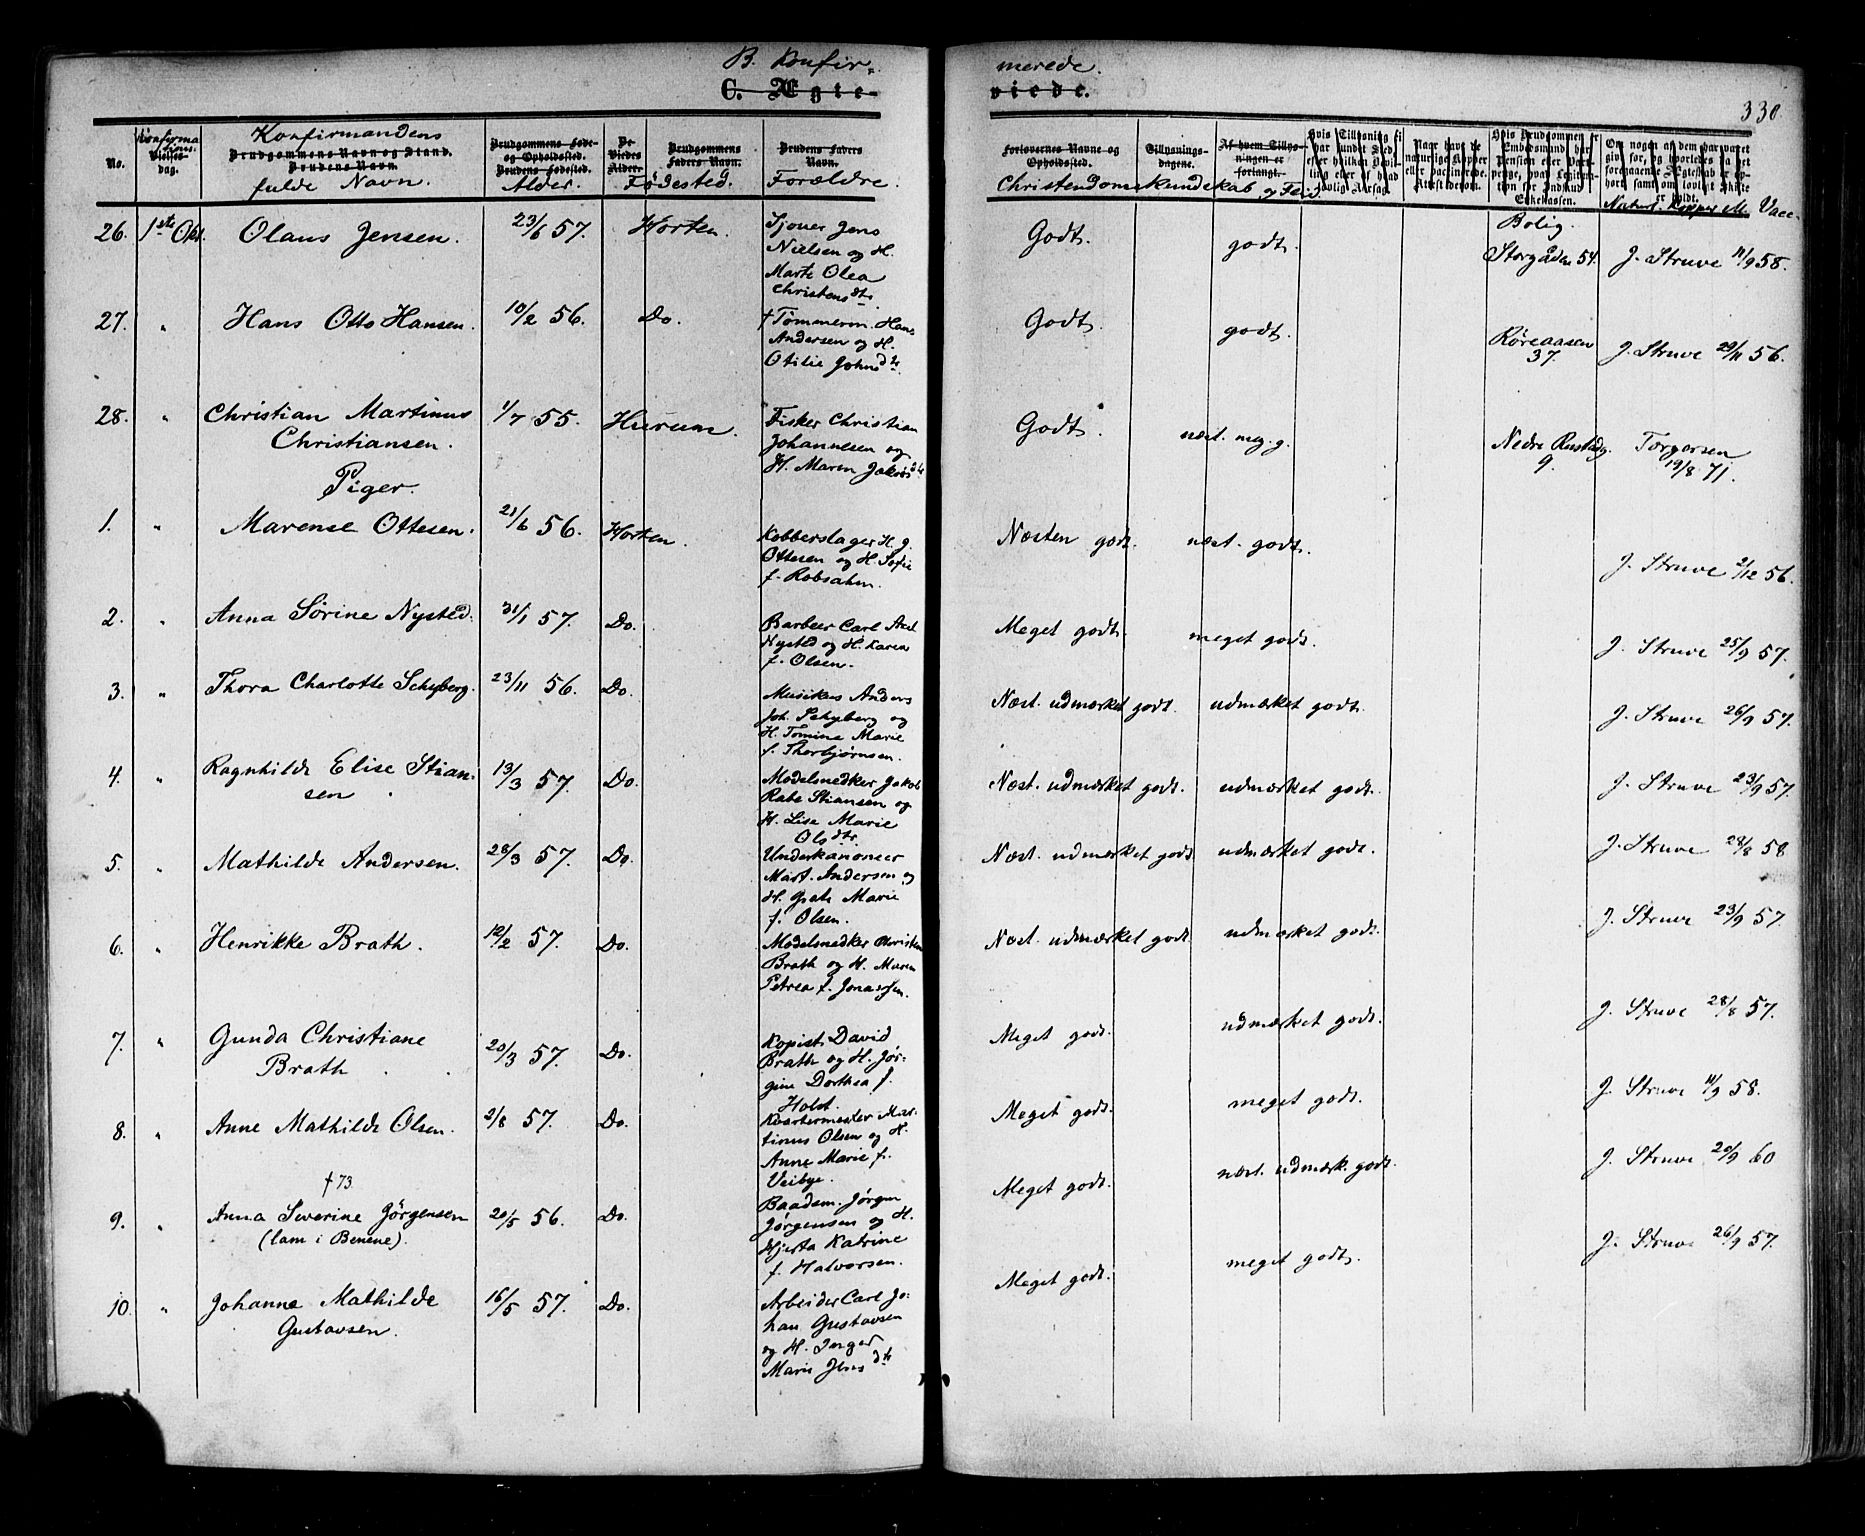 B. Konfir-
merede.
C. Ægte-
viede.
330
No.
Konfirma
tions
Vielses-
dag.
Konfirmandens
Brudgommens Navn og Stand.
Brudens Navn.
fulde Navn.
Brudgommens Føde-
og Opholdssted.
Brudens Fødested.
Alder.
De
Viedes
Alder.
Brudgommens
Faders Navn.
Fødested.
Brudens Faders
Navn.
Forældre.
Forlovernes Navne og
Opholdssted.
Tillysnings-
dagene.
Af hvem Tillys-
ningen er
forlangt.
Christendomskundskab og Flid.
Naar have de
naturlige Kopper
eller vaccinerede.
Attest derom.
Hvis Brudgommen er
Embedsmand, har
Pension eller Vart-
penge, hvad Legitima-
tion for Indskud i
Enkekassen.
Om nogen af dem har været
gift før, og hvorledes da det
foregaaende Ægteskab er op-
hørt samt om lovligt Skifte
er holdt.
Naturl. Kopper el. Vacc.
26. 1ste Okt. Olaus Jensen. 23/6 57. Horten. Tjener Jens
Nielsen og H.
Marte Olea
Christensdtr.
Godt. godt.
Bolig.
Storgaden 54. J. Struve 11/9 58.
27. " Hans Otto Hansen. 10/2 56. Do. † Tømmerm. Hans
Andersen og H.
Otilie Johnsdtr.
Godt. godt. Røreaasen
37. J. Struve 29/11 56.
28. " Christian Martinus
Christiansen. 1/7 55. Hurum. Fisker Christian
Johannesen og
H. Maren Jakobsdtr
Godt. næst. meg. g. Nedre Rustadg.
9. Torgersen
19/8 71.
Piger.
1. " Marense Ottesen. 21/6 56. Horten. Kobberslager H. G.
Ottesen og H. Sofie
f. Robsahm.
Næsten godt. næst. godt. J. Struve 2/12 56.
2. " Anna Sørine Nysted. 31/1 57. Do. Barbeer Carl Axel
Nysted og H. Karen
f. Olsen.
Meget godt. meget godt. J. Struve 25/9 57.
3. " Thora Charlotte Schyberg. 23/11 56. Do. Musikus Anders
Joh. Schyberg og
H. Tomine Marie
f. Thorbjørnsen.
Næst. udmærket godt. udmæket godt. J. Struve 26/9 57.
4. " Ragnhilde Elise Stian-
sen 13/3 57. Do. Modelsnedker Jakob
Rabe Stiansen og
H. Lise Marie
Olsdtr.
Næst. udmærket godt. udmærket godt. J. Struve 23/9 57.
5. " Mathilde Andersen. 28/3 57. Do. Underkanoneer
Mart. Andersen og
H. Grete Marie
f. Olsen.
Næst. udmærket godt udmærket godt. J. Struve 28/8 58
6. " Henrikke Brath. 12/2 57. Do. Modelsnedker Christian
Brath og H. Maren
Petrea f. Jonassen.
Næst. udmærket godt udmærket godt. J. Struve 23/9 57.
7. " Gunda Christiane
Brath. 20/3 57. Do. Kopist David
Brath og H. Jør-
gine Dorthea f.
Holst.
Meget godt. udmæket godt. J. Struve 28/8 57.
8. " Anne Mathilde Olsen. 2/8 57. Do. Kvartermester Mar-
tinus Olsen og H.
Anne Marie f.
Veibye.
Meget godt. meget godt. J. Struve 11/9 58.
† 73
9. " Anna Severine Jørgensen
(lam i Benene). 20/5 56. Do. Baadsm. Jørgen
Jørgensen og H.
Hjerta Katrine
f. Halvorsen.
Meget godt. næst. udmærk. godt. J. Struve 20/9 60
10. " Johanne Mathilde
Gustavsen. 16/5 57. Do. Arbeider Carl Jo-
han Gustavsen
og H. Inger
Marie Jensdtr
Meget godt. meget godt. J. Struve 26/9 57.